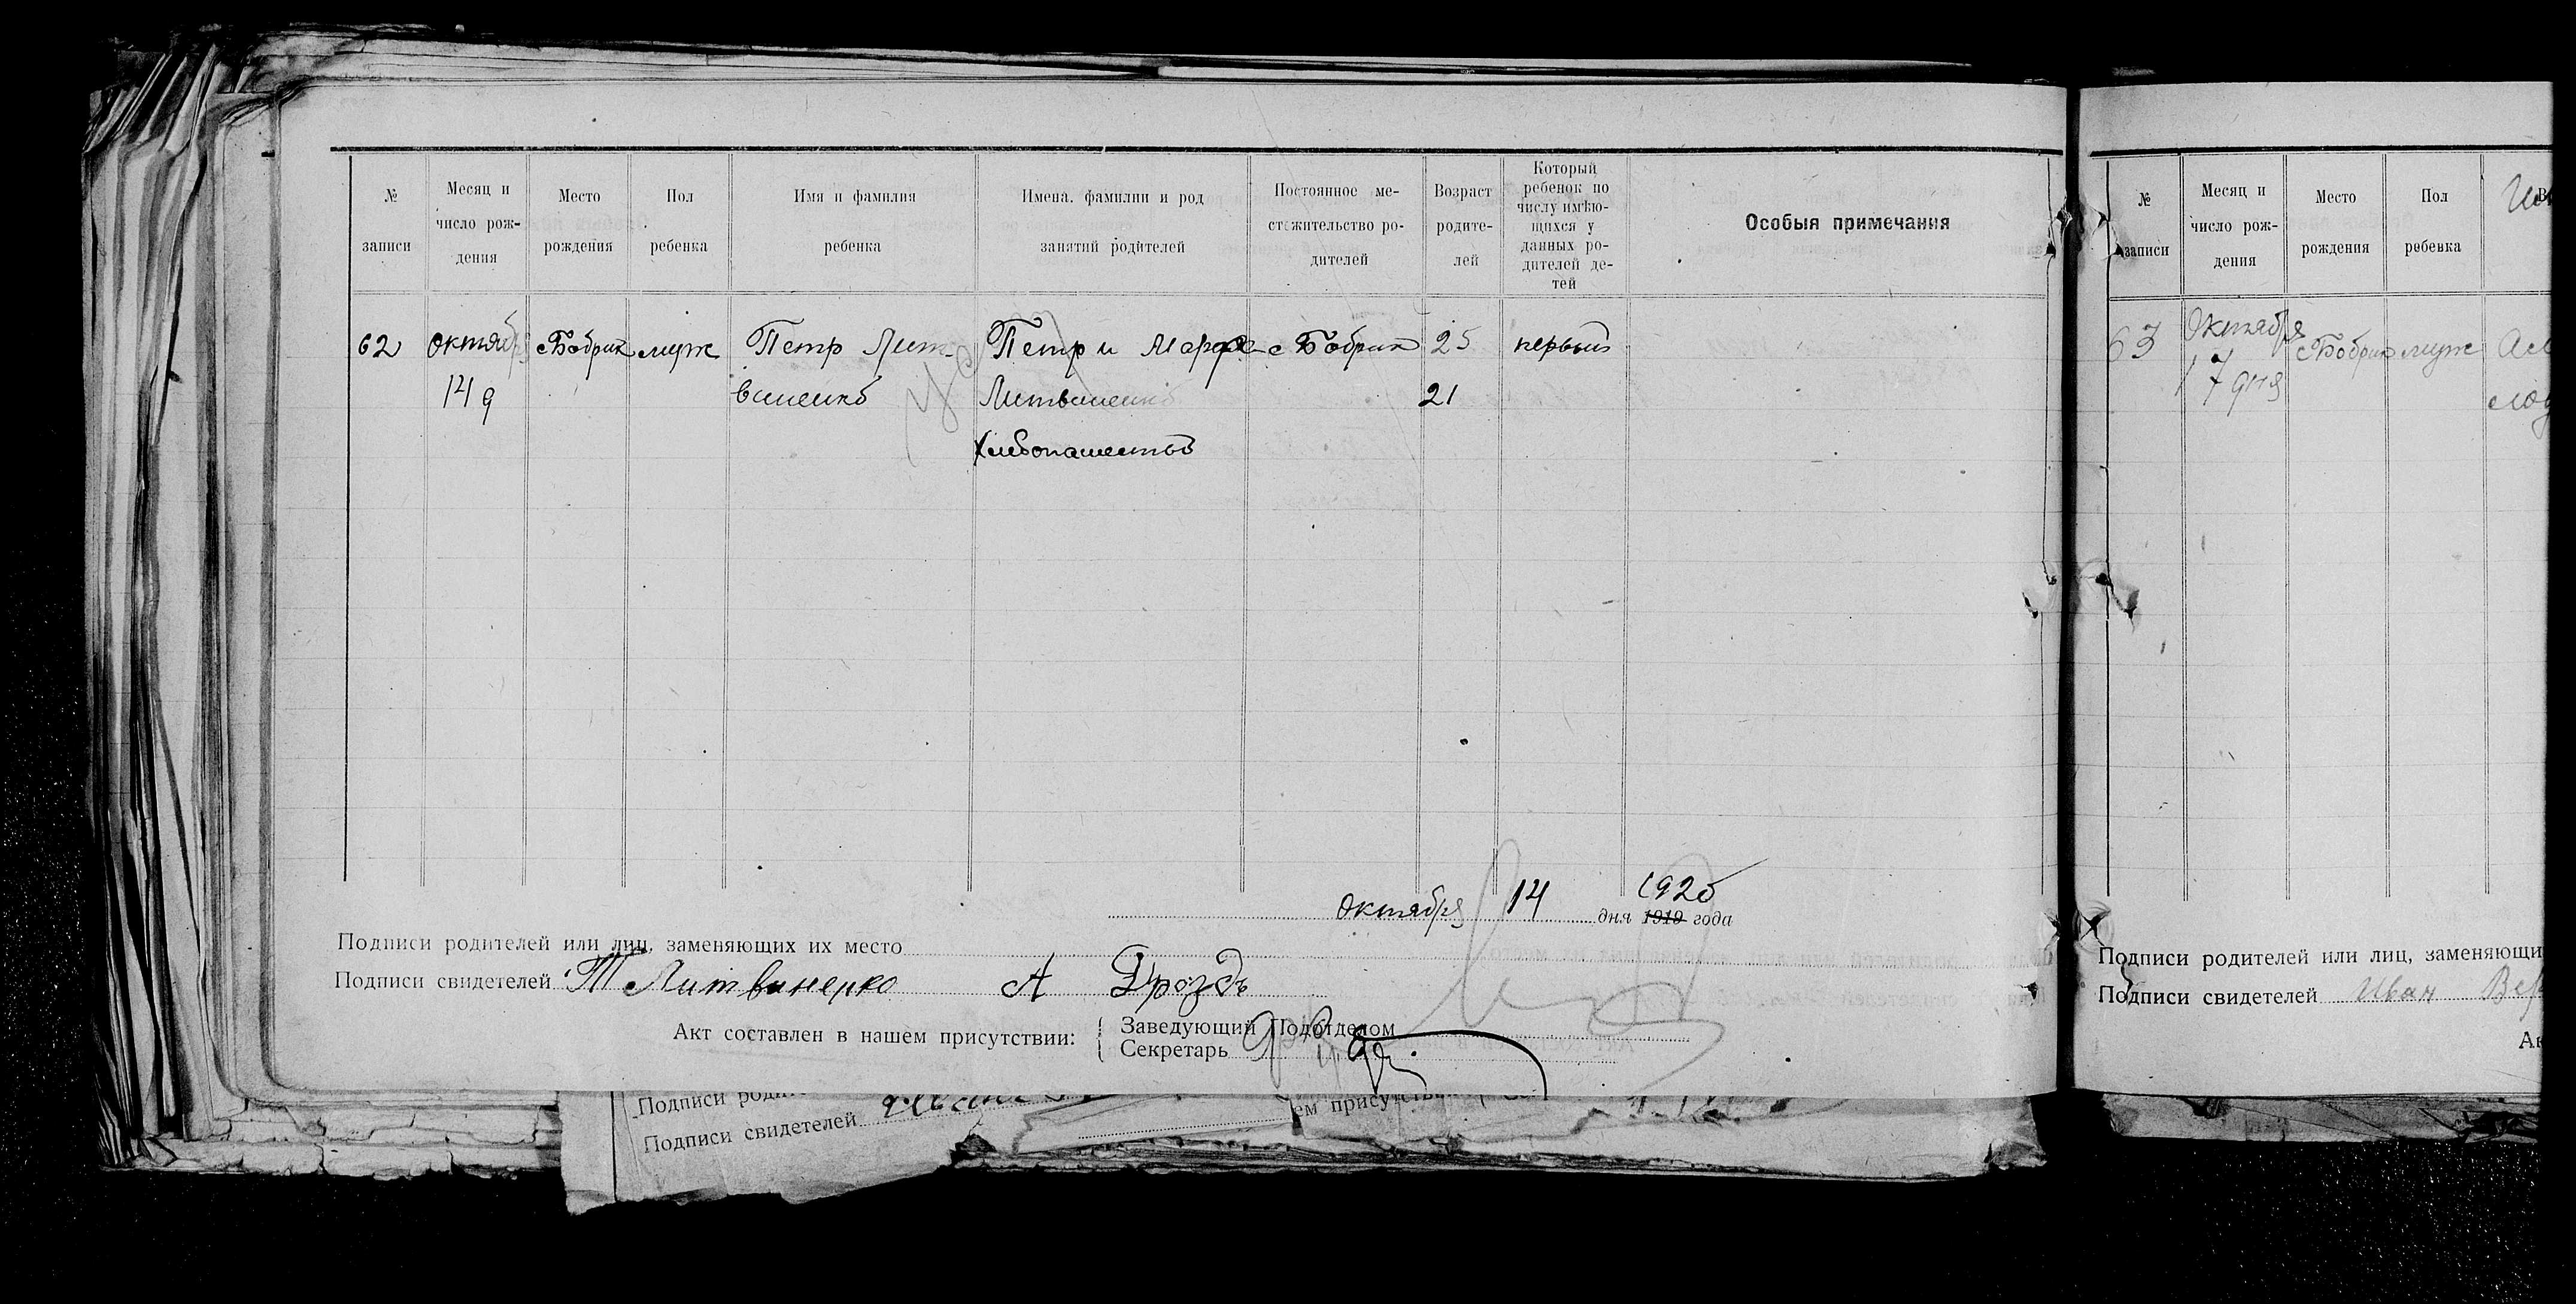 № записи
Месяц и число рождения
Место рождения
Пол ребенка
Имя и фамилия ребенка
Имена, фамилии и род занятий родителей
Постоянное местожительство родителей
Возраст родителей
Который ребенок по числу имѣющихся у данных родителей детей
Особыя примечания
62 октября с Бобрик муж Петр Лит- Петр и Марфа с Бобрик 25 первый
14 д виненко Литвиненко 21
хлебопашество
октября 14 дня 1919 года 1920
Подписи родителей или лиц, заменяющих их место
Подписи свидетелей Т Литвиненко А Дроздъ
Акт составлен в нашем присутствии:
Заведующий Подотделом
Секретарь
№ записи
Месяц и число рождения
Место рождения
Пол ребенка
63 Октября с Бобрик муж
17 дня
Подписи родителей или лиц, заменяющи
Подписи свидетелей Иван Вер
Ак
Подписи родит
Подписи свидетелей
ем присутств